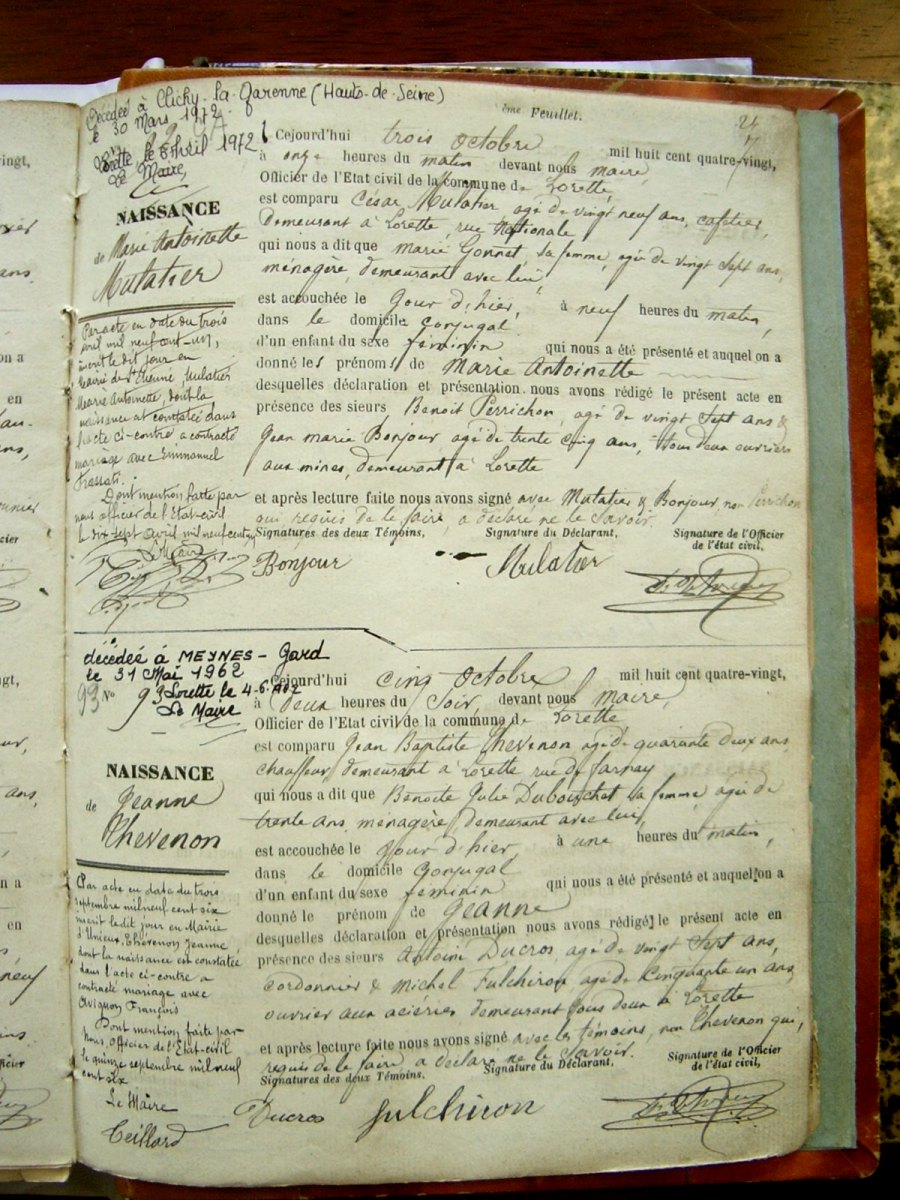 Décédée à Clichy-la-Garenne (Hauts-de-Seine)
le 30 Mars 1972
Lorette le 8 Avril 1972
Le Maire,
24
7
ème Feuillet.
NAISSANCE
de Marie Antoinette
Mulatier
Par acte en date du trois
avril mil neuf cent un,
inscrit le dit jour en
mairie de St Etienne, Mulatier
Marie Antoinette, dont la
naissance est constatée dans
l'acte ci-contre a contracté
mariage avec Emmanuel
Dont mention faite par
nous officier de l'Etat-civil
le dix sept avril mil neuf cent un
Le Maire
Cejourd'hui trois octobre mil huit cent quatre-vingt,
à onze heures du matin devant nous maire,
Officier de l'Etat civil de la commune de Lorette,
est comparu César Mulatier, agé de vingt neuf ans, cafetier,
Demeurant à Lorette, rue Nationale
qui nous a dit que marie Gonnet, sa femme, agée de vingt sept ans,
ménagère, demeurant avec lui,
est accouchée le Jour d'hier, à neuf heures du matin,
dans le domicile conjugal
d'un enfant du sexe feminin qui nous a été présenté et auquel on a
donné les prénoms de Marie Antoinette
desquelles déclaration et présentation nous avons rédigé le présent acte en
présence des sieurs Benoit Perrichon, agé de vingt sept ans &
Jean marie Bonjour agé de trente cinq ans, tous deux ouvriers
aux mines, demeurant à Lorette
et après lecture faite nous avons signé avec Mulatier & Bonjour, non Perrichon
qui requis de le faire a déclaré ne le savoir.
Signatures des deux Témoins, Signature du Déclarant, Signature de l'Officier
de l'état civil,
Bonjour Mulatier
décédée à MEYNES - Gard
le 31 Mai 1962
93 No 93 Lorette le 4-6-1962
Le Maire
NAISSANCE
de Jeanne
Chevenon
Par acte en date du trois
septembre mil neuf cent six
inscrit le dit jour en Mairie
d'Unieux, Chevenon Jeanne
dont la naissance est constatée
dans l'acte ci-contre a
contracté mariage avec
Avignon François
Dont mention faite par
Nous, Officier de l'Etat-civil
le quinze septembre mil neuf
cent six
Le Maire
Teillard
Cejourd'hui cinq octobre mil huit cent quatre-vingt,
à Deux heures du Soir, devant nous Maire,
Officier de l'Etat civil de la commune de Lorette
est comparu Jean Baptiste Chevenon agé de quarante deux ans,
chauffeur, demeurant à Lorette rue de farnay
qui nous a dit que Benoite Julie Dubouchet sa femme, agée de
trente ans, ménagère, demeurant avec lui,
est accouchée le jour d'hier, à une heures du matin,
dans le domicile Conjugal
d'un enfant du sexe feminin qui nous a été présenté et auquel on a
donné le prénom de Jeanne
desquelles déclaration et présentation nous avons rédigé le présent acte en
présence des sieurs Antoine Ducros, agé de vingt sept ans,
cordonnier & Michel Fulchiron, agé de Cinquante un ans,
ouvrier aux aciéries, demeurant tous deux à Lorette
et après lecture faite nous avons signé avec les témoins, non Chevenon qui,
requis de le faire, a déclaré ne le savoir.
Signatures des deux Témoins, Signature du Déclarant, Signature de l'Officier
de l'état civil,
Ducros fulchiron